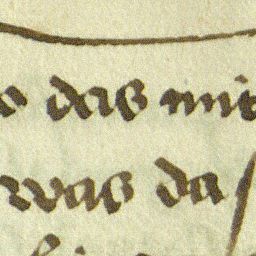 das mit
was da